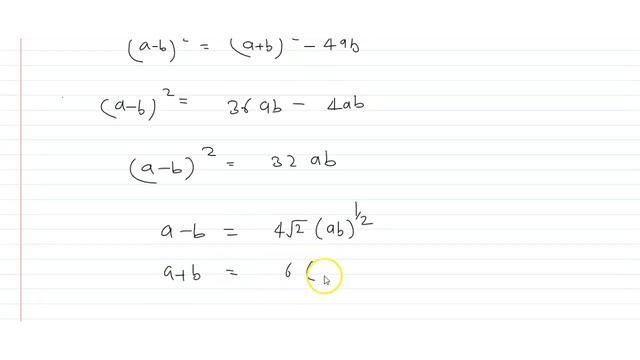 (a-b)² = (a+b)² - 4ab
(a-b)² = 36ab - 4ab
(a-b)² = 32 ab
a-b = 4√2 (ab)^1/2
a+b = 6 (